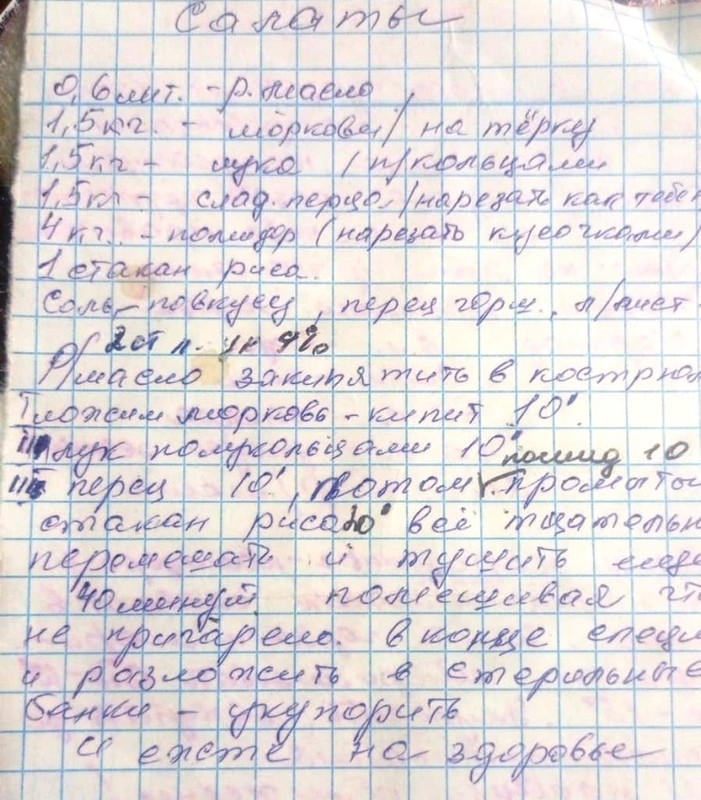 Салаты
0,6 лит. - р. масло
1,5кг. - моркови / на тёрку
1,5кг - лука / п/кольцами
1,5кг - слад. перца / нарезать как
4 кг. - помидор (нарезать кусочками)
1 стакан риса.
Соль - по вкусу, перец горш., л/лист
2 ст л. ук 9%
Р/масло закипятить в
I ложим морковь - кипит 10'
II лук полукольцами 10' помид 10
III перец 10', потом промытый
стакан риса 10' всё
перемешать и тушить
40 минут помешивая
не пригарело. в конце
и разложить в стерильные
банки - укупорить
И ежте на здоровье